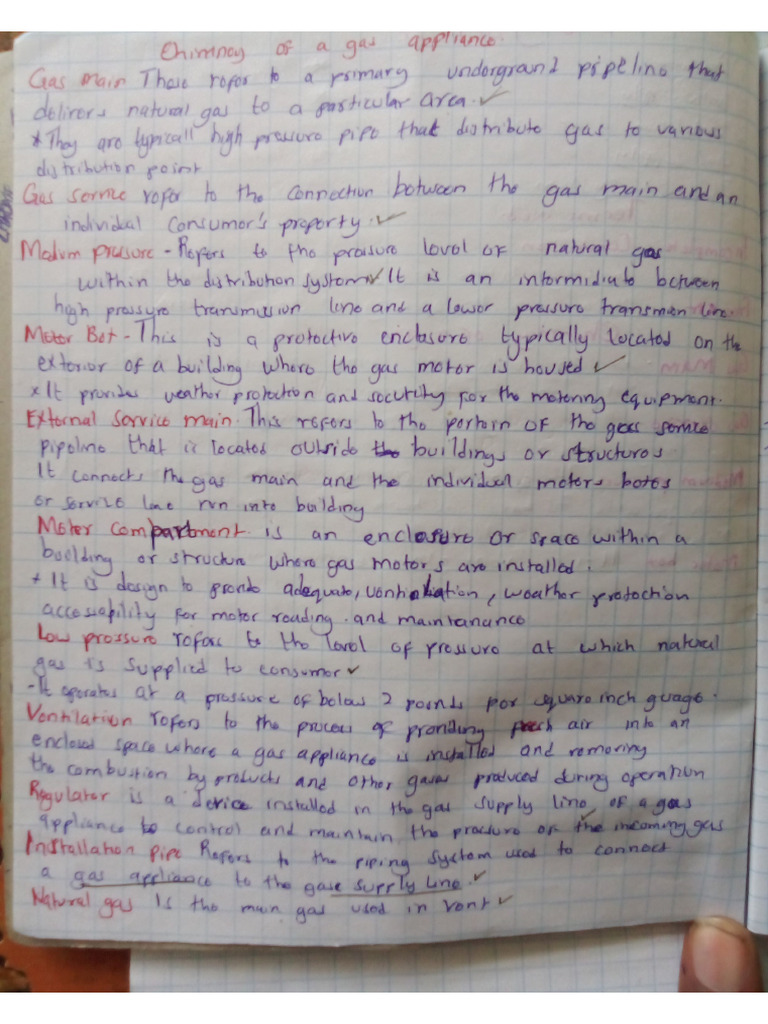 Chimney of a gas appliance.
Gas main These refer to a primary underground pipeline that
delivers natural gas to a particular area.
* They are typicall high pressure pipe that distribute gas to various
distribution point
Gas service refer to the connection between the gas main and an
individual consumer's property.
Medum pressure - Refers to the pressure level of natural gas
within the distribution system It is an intermidiate between
high pressure transmission line and a lower pressure transmion line.
Meter Bot - This is a protective enclosure typically located on the
exterior of a building where the gas meter is housed
* It provides weather protection and security for the metering equipment.
External service main. This refers to the portern of the gas service
pipeline that is located outside the buildings or structures
It connects the gas main and the individual meters botes
or service line run into building
Meter compartment. is an enclosure or space within a
boolding or structure where gas meters are installed.
* It is design to provide adequate, ventilation, weather protection
accessiability for meter reading. and maintanance
Low pressure refers to the level of pressure at which natural
gas is supplied to consumer
- It operates at a pressure of below 2 pounds per square inch guage.
Ventilation refers to the process of providing fresh air into an
enclosed space where a gas appliance is installed and removing
the combustion by products and other gases produced during operation
Regulator is a device installed in the gas supply line of a gas
appliance to control and maintain the pressure of the incoming gas
Installation pipe Refers to the piping system used to connect
a gas appliance to the gase supply line.
Natural gas is the main gas used in vent